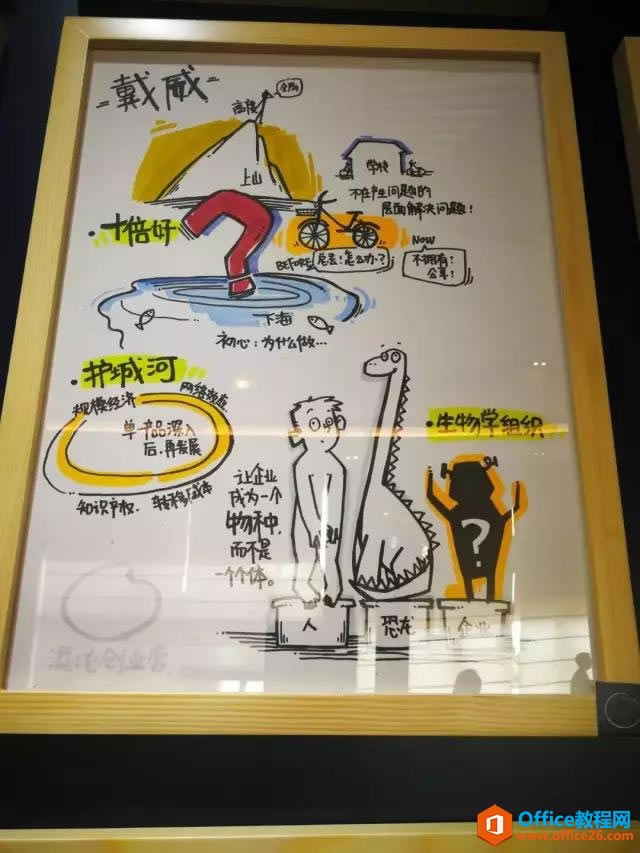 =戴威=
高度
全局
上山
学校
不在产生问题的
层面解决问题!
·十倍好
BEFORE
总丢!怎么办?
NOW
不拥有!
公享!
下海
初心:为什么做…
·护城河
规模经济
网络效应
单产品深入
后,再发展
知识产权.
转移成本
·生物学组织
让企业
成为一个
物种,
而不是
一个个体。
?
人
恐龙
企业
混沌创业营
Office教程网
www.office26.com